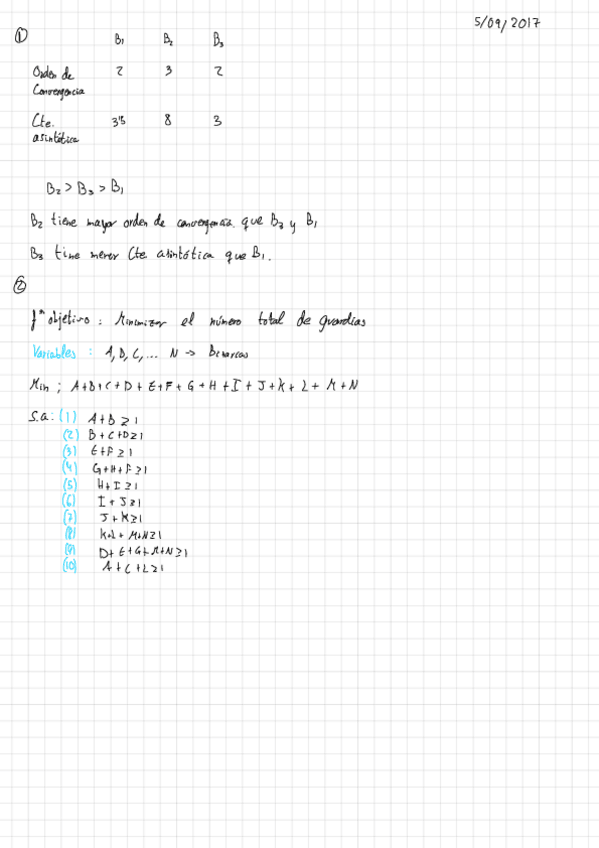 5/09/2017
①
B₁ B₂ B₃
Orden de 2 3 2
Convergencia
Cte. 3'5 8 3
asintótica
B₂ > B₃ > B₁
B₂ tiene mayor orden de convergencia que B₃ y B₁
B₃ tiene menor Cte asintótica que B₁.
②
fⁿ objetivo : Minimizar el número total de guardias
Variables : A, B, C, ... N → Binarias
Min ; A+B+C+D+E+F+G+H+I+J+K+L+M+N
S.a: (1) A+B ≥ 1
(2) B+C+D ≥ 1
(3) E+F ≥ 1
(4) G+H+F ≥ 1
(5) H+I ≥ 1
(6) I+J ≥ 1
(7) J+K ≥ 1
(8) K+L+M+N ≥ 1
(9) D+E+G+M+N ≥ 1
(10) A+C+L ≥ 1